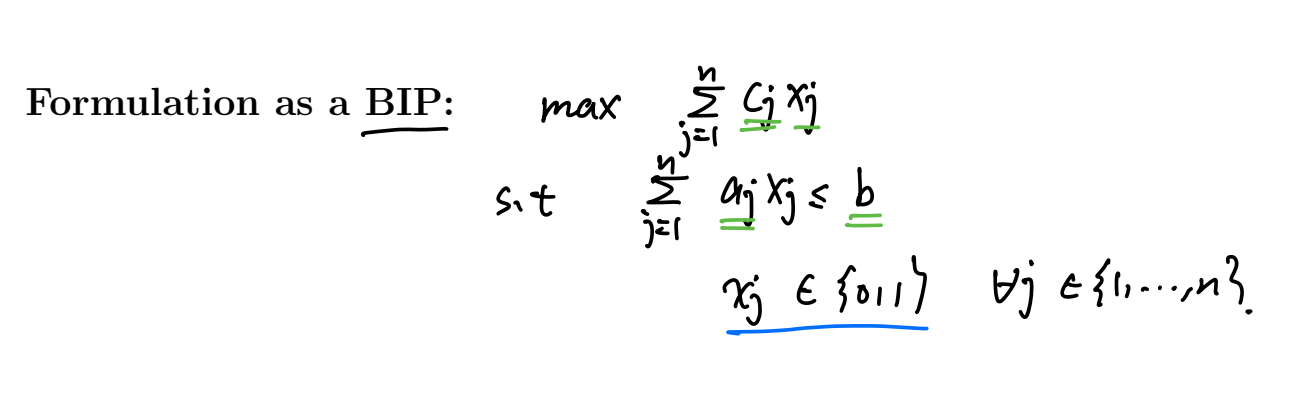 Formulation as a BIP: max ∑_{j=1}^{n} c_j x_j
s.t ∑_{j=1}^{n} a_j x_j ≤ b
x_j ∈ {0,1} ∀j ∈ {1,...,n}.